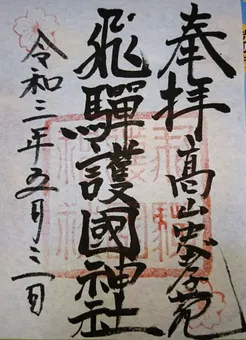 奉拝
高山忠孝苑
飛騨護國神社
令和三年五月三日